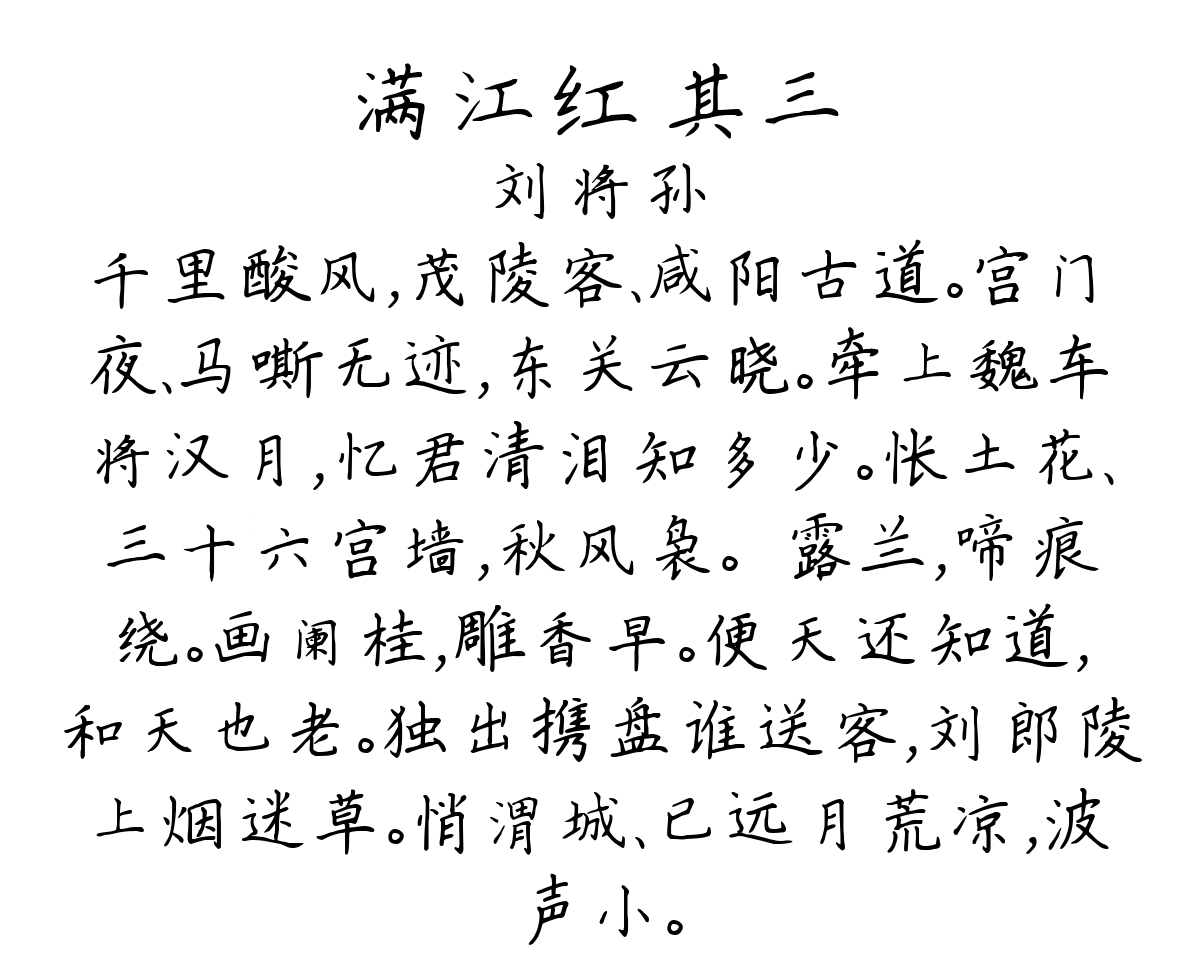 满江红其三
刘将孙
千里酸风,茂陵客、咸阳古道。宫门
夜、马嘶无迹,东关云晓。牵上魏车
将汉月,忆君清泪知多少。怅土花、
三十六宫墙,秋风袅。 露兰,啼痕
绕。画阑桂,雕香早。便天还知道,
和天也老。独出携盘谁送客,刘郎陵
上烟迷草。悄渭城、已远月荒凉,波
声小。